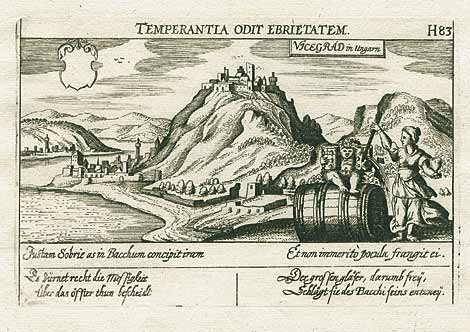 TEMPERANTIA ODIT EBRIETATEM.
H83
VICEGRAD in Ungarn
Justam Sobrie as in Bacchum concipit iram
Et non immerito pocula frangit ei.
Es zürnet recht die Mässigkeit
Uber das öffter thun bescheidt
Den grossen gläser, darumb frey,
Schlägt sie des Bacchi seins entzwey.